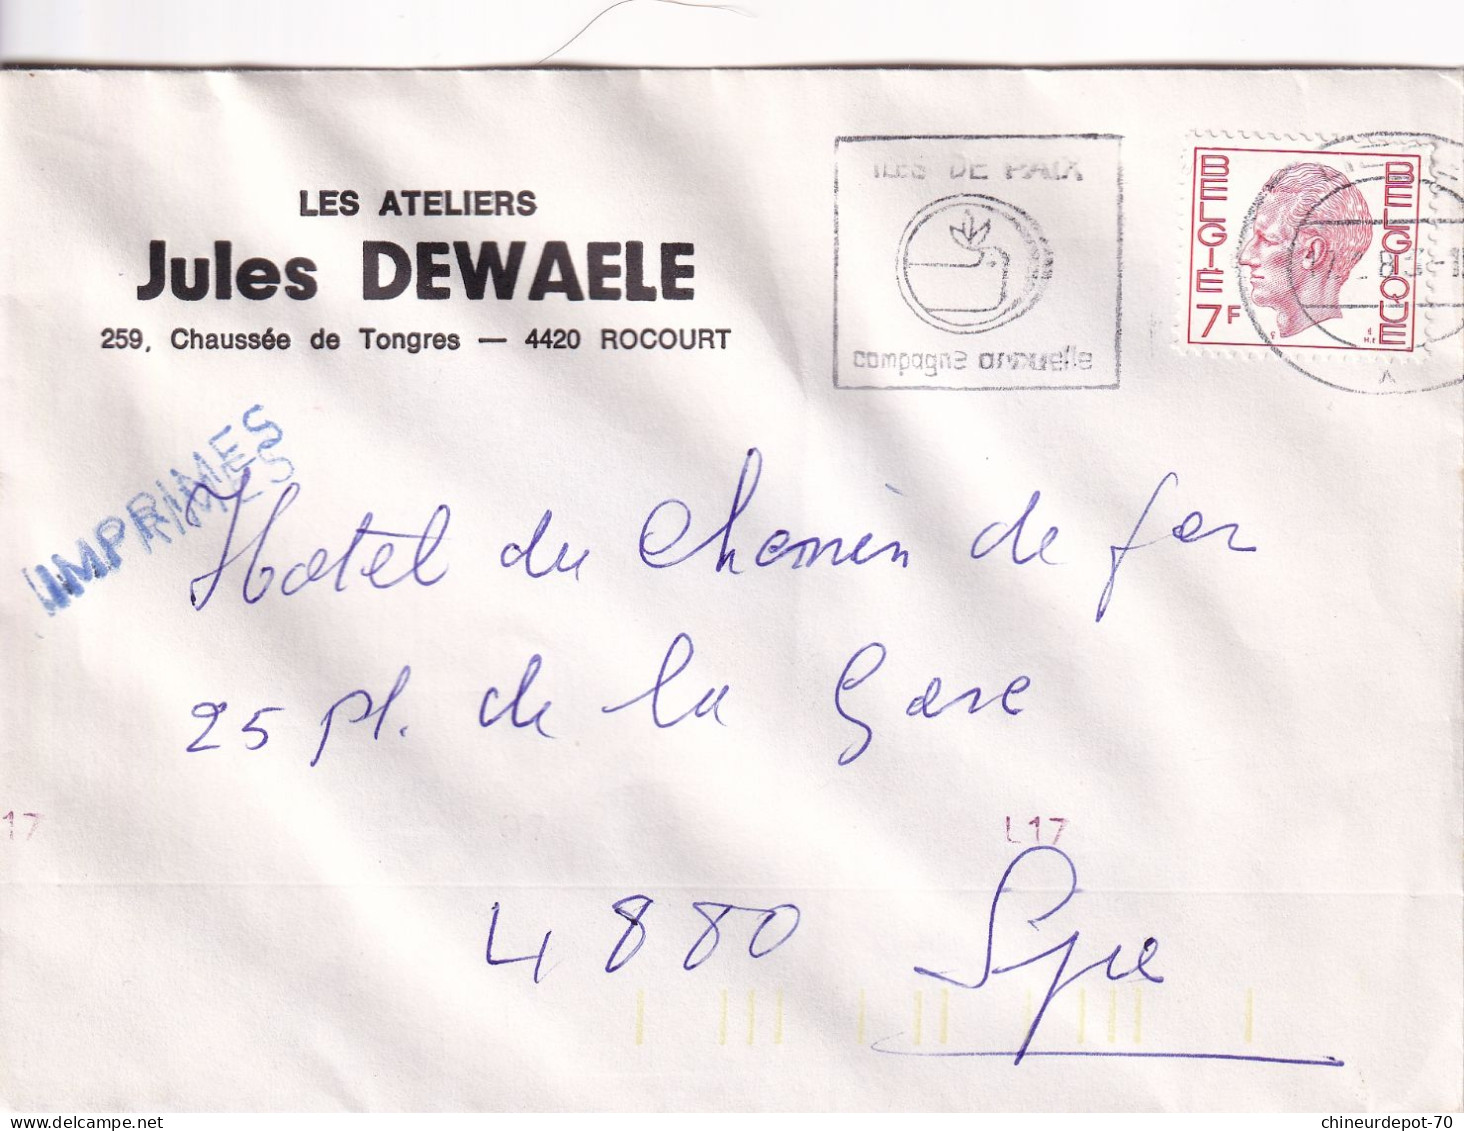 LES ATELIERS
Jules DEWAELE
259, Chaussée de Tongres — 4420 ROCOURT
ILES DE PAIX
campagne annuelle
BELGIË 7F
BELGIQUE
IMPRIMES
Hotel du Chemin de fer
25 pl. de la Gare
17
L17
4880 Spa
chineurdepot-70